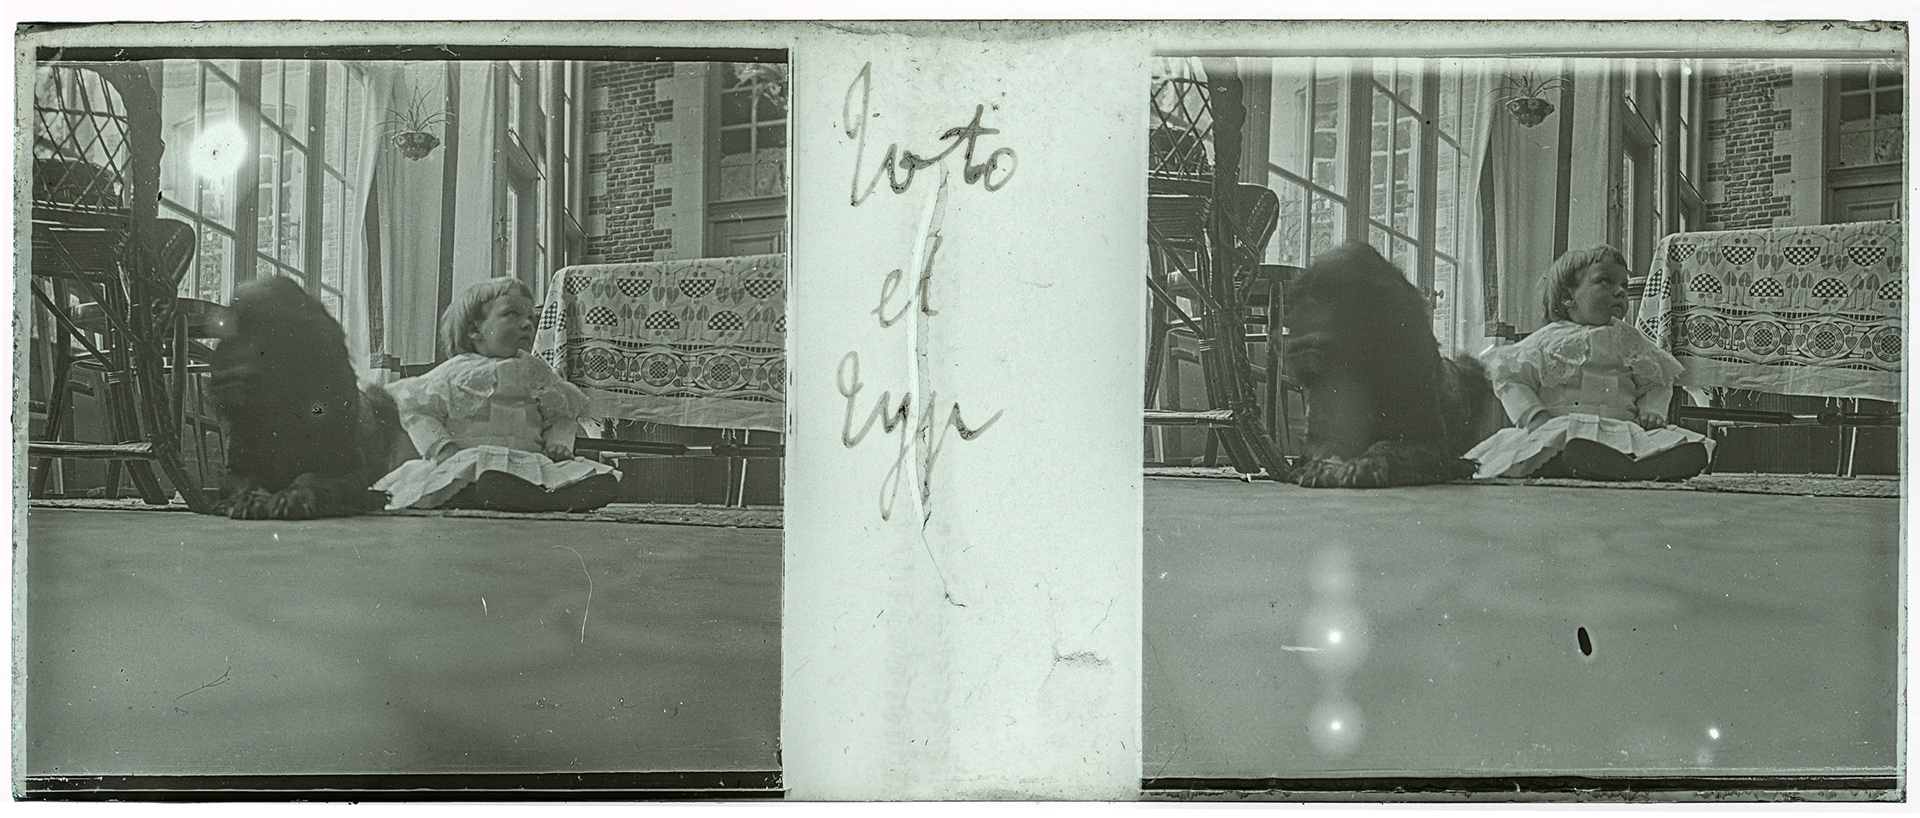 Toto
et
Zyp